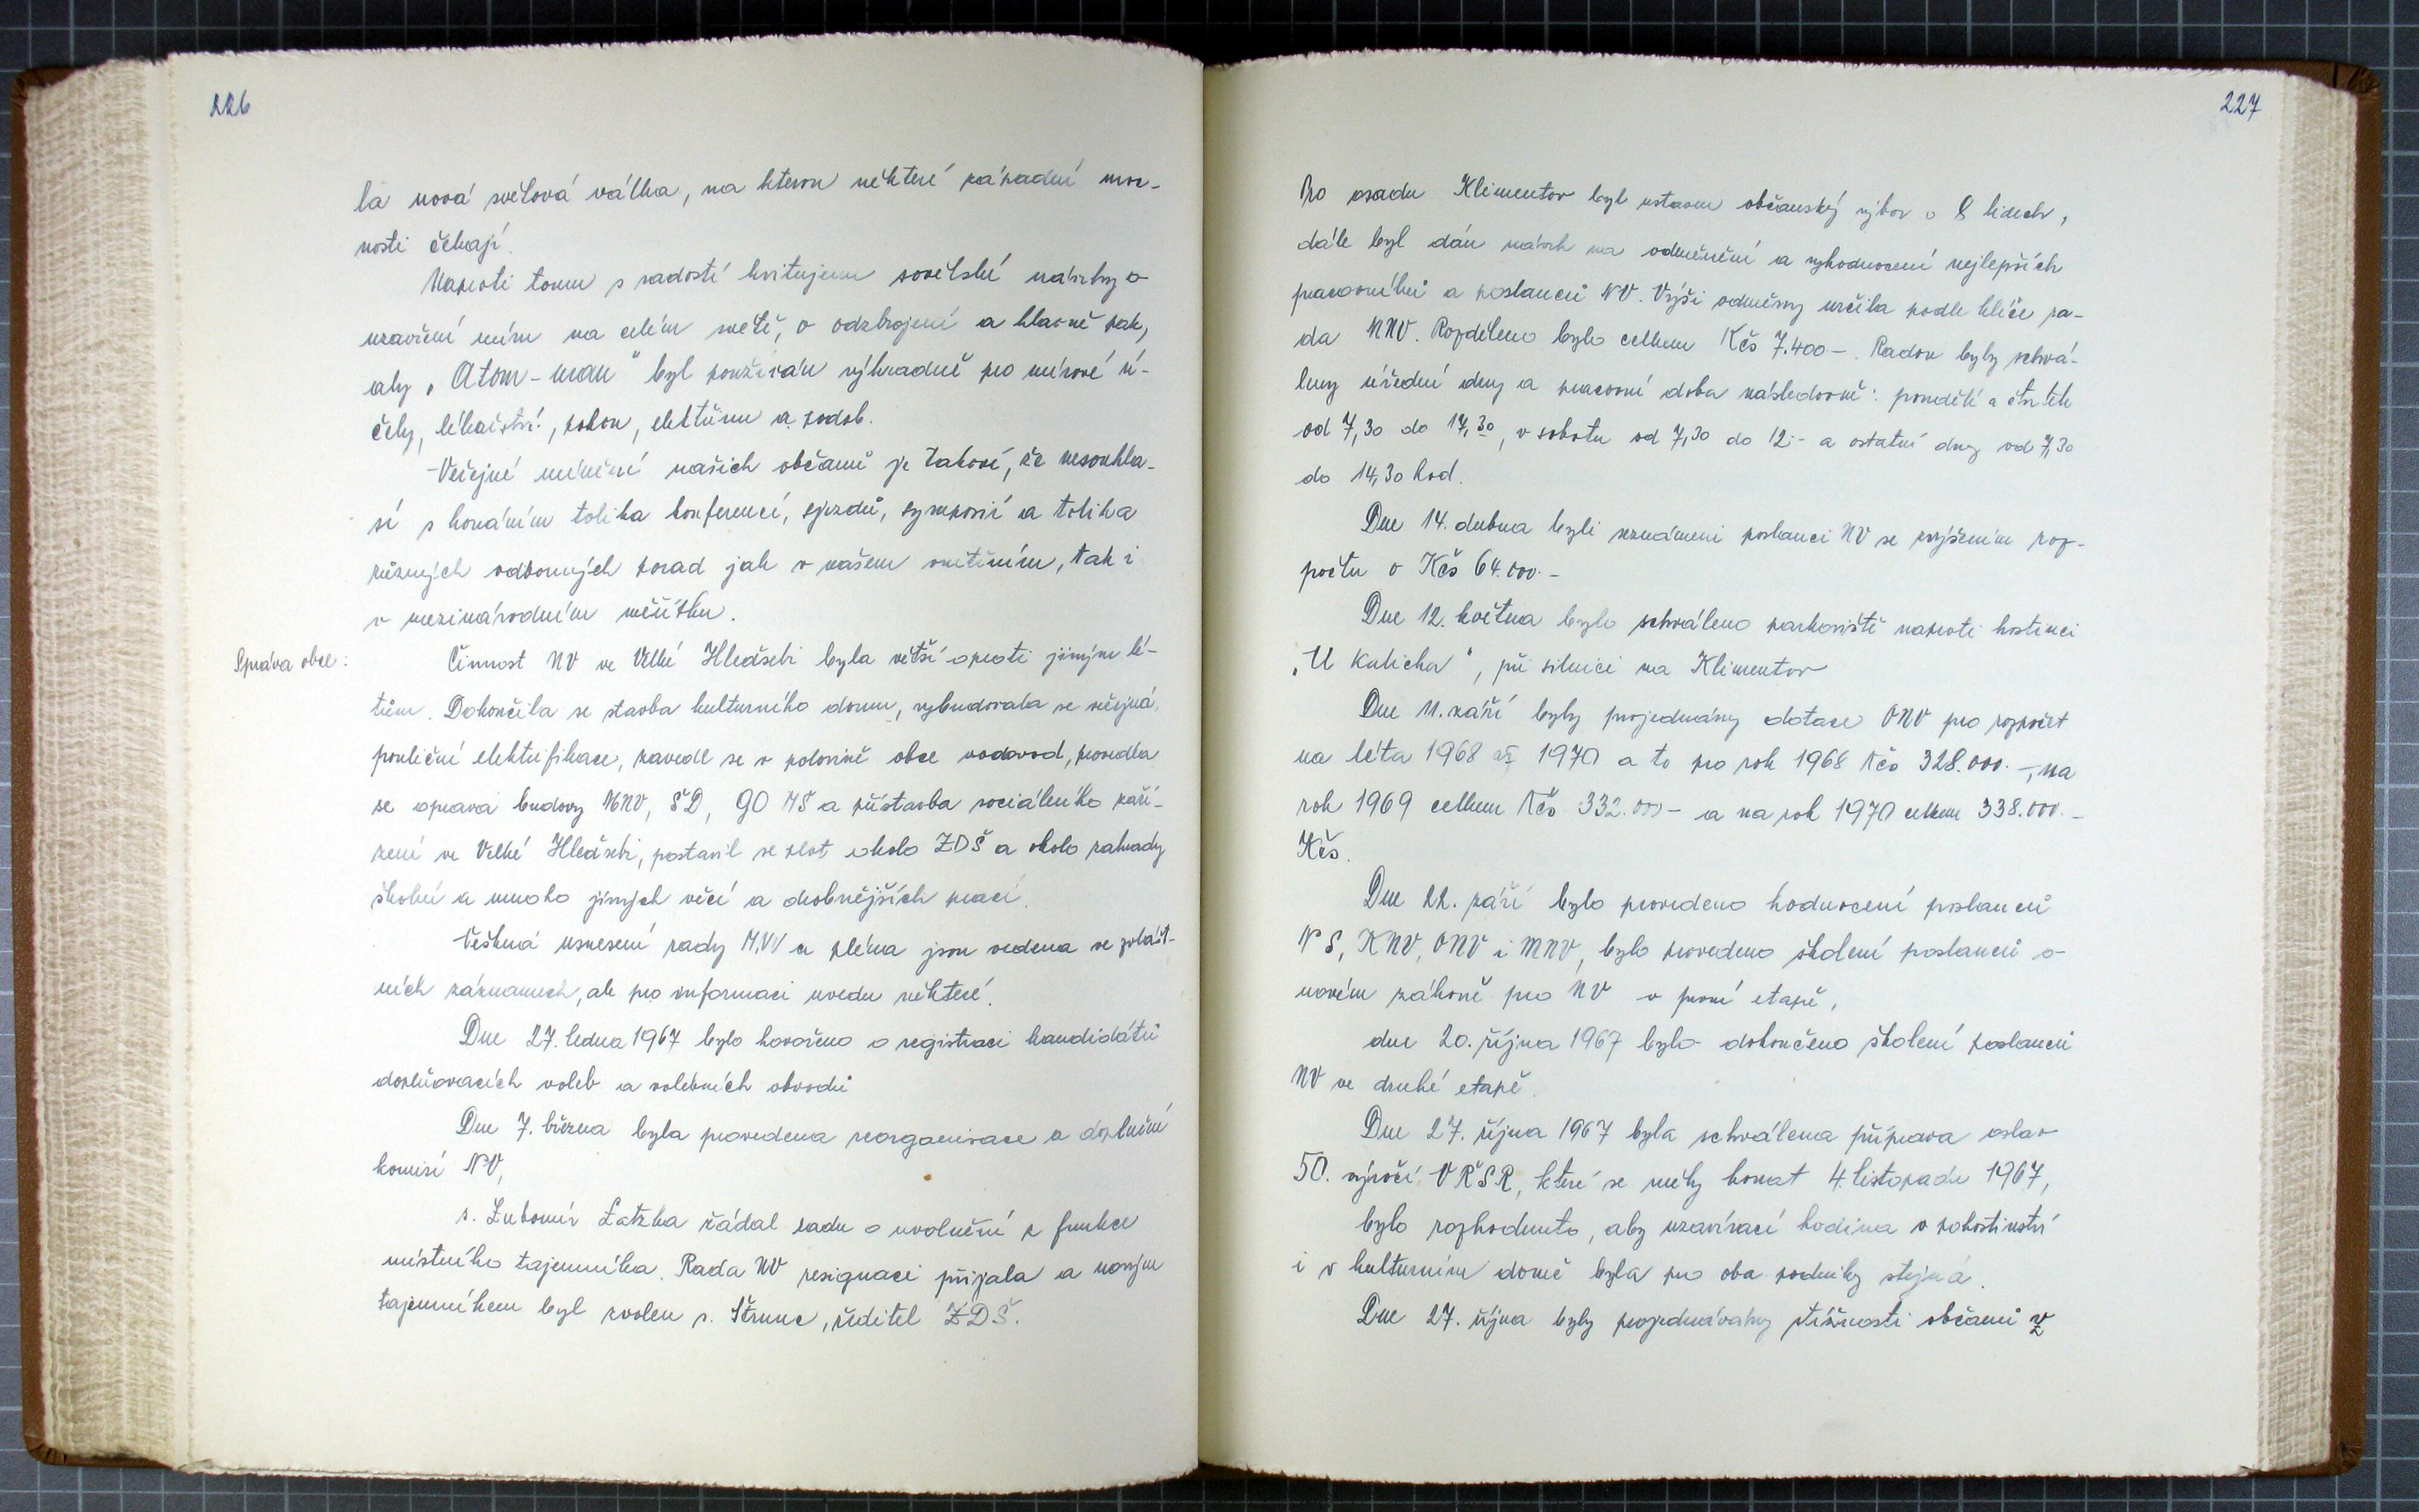 226
la nová světová válka, na kterou některé západní moc-
nosti čekají.
Naproti tomu s radostí kvitujeme sovětské návrhy o
uzavření míru na celém světě, o odzbrojení a hlavně pak,
aby „Atom-uran" byl používán výhradně pro mírové ú-
čely, lékařství, pohon, elektřinu a podob.
Veřejné mínění našich občanů je takové, že nesouhla-
sí s konáním tolika konferencí, sjezdů, symposií a tolika
různých odborných porad jak v našem vnitřním, tak i
v mezinárodním měřítku.
Správa obce:
Činnost NV ve Velké Hleďsebi byla větší oproti jiným lé-
tům. Dokončila se stavba kulturního domu, vybudovala se veřejná
pouliční elektrifikace, zavedl se v polovině obce vodovod, provedla
se oprava budovy MNV, ŠD, GO MŠ a přístavba sociálního zaří-
zení ve Velké Hleďsebi, postavil se plot okolo ZDŠ a okolo zahrady
školní a mnoho jiných věcí a drobnějších prací.
Veškerá usnesení rady MNV a pléna jsou vedena ve zvlášt-
ních záznamech, ale pro informaci uvedu některé.
Dne 27. ledna 1967 bylo hovořeno o registraci kandidátů
doplňovacích voleb a volebních obvodů
Dne 7. března byla provedena reorganisace a doplnění
komisí NV,
s. Lubomír Latzka žádal radu o uvolnění z funkce
místního tajemníka. Rada NV resignaci přijala a novým
tajemníkem byl zvolen s. Štrunc, ředitel ZDŠ.
227
Pro osadu Klimentov byl ustaven občanský výbor o 8 lidech,
dále byl dán návrh na odměnění a vyhodnocení nejlepších
pracovníků a poslanců NV. Výši odměny určila podle klíče ra-
da MNV. Rozděleno bylo celkem Kčs 7.400.-. Radou byly schvá-
leny úřední dny a pracovní doba následovně: pondělí a čtvrtek
od 7,30 do 17,30, v sobotu od 7,30 do 12.- a ostatní dny od 7,30
do 14,30 hod.
Dne 14. dubna byli seznámeni poslanci NV se zvýšením roz-
počtu o Kčs 64.000.-
Dne 12. května bylo schváleno parkoviště naproti hostinci
„U Kalicha", při silnici na Klimentov
Dne 11. září byly projednány dotace ONV pro rozpočet
na léta 1968 až 1970 a to pro rok 1968 Kčs 328.000.-, na
rok 1969 celkem Kčs 332.000- a na rok 1970 celkem 338.000.-
Kčs.
Dne 22. září bylo provedeno hodnocení poslanců
NS, KNV, ONV i MNV, bylo provedeno školení poslanců o
novém zákoně pro NV v první etapě,
dne 20. října 1967 bylo dokončeno školení poslanců
NV ve druhé etapě.
Dne 27. října 1967 byla schválena příprava oslav
50. výročí VŘSR, které se měly konat 4. listopadu 1967,
bylo rozhodnuto, aby uzavírací hodina v pohostinství
i v kulturním domě byla pro oba podniky stejná.
Dne 27. října byly projednávány stížnosti občanů z